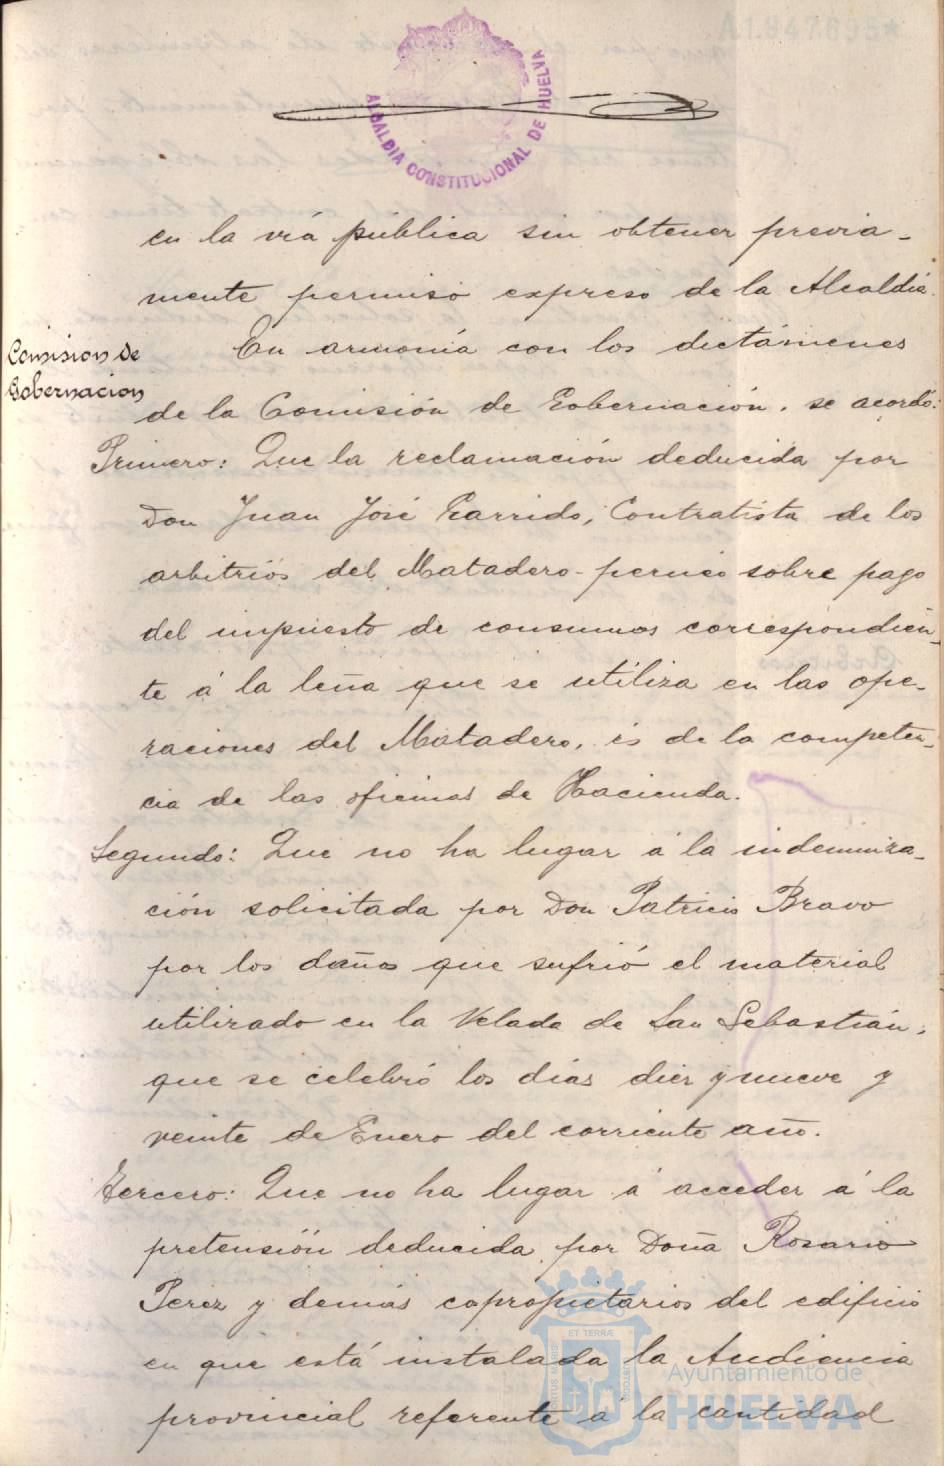 A1.947.695*
ALCALDIA CONSTITUCIONAL DE HUELVA
en la vía pública sin obtener previa-
mente permiso expreso de la Alcaldía.
Comision de
Gobernacion
En armonía con los dictámenes
de la Comisión de Gobernación, se acordó:
Primero: Que la reclamación deducida por
Don Juan José Garrido, Contratista de los
arbitrios del Matadero sobre pago
del impuesto de consumos correspondien-
te á la leña que se utiliza en las ope-
raciones del Matadero, es de la competen-
cia de las oficinas de Hacienda.
Segundo: Que no ha lugar á la indemniza-
ción solicitada por Don Patricio Bravo
por los daños que sufrió el material
utilizado en la Velada de San Sebastián,
que se celebró los días diez y nueve y
veinte de Enero del corriente año.
Tercero: Que no ha lugar á acceder á la
pretensión deducida por Doña Rosario
Perez y demás copropietarios del edificio
en que está instalada la Audiencia
provincial referente á la cantidad
ET TERRÆ
Ayuntamiento de
HUELVA